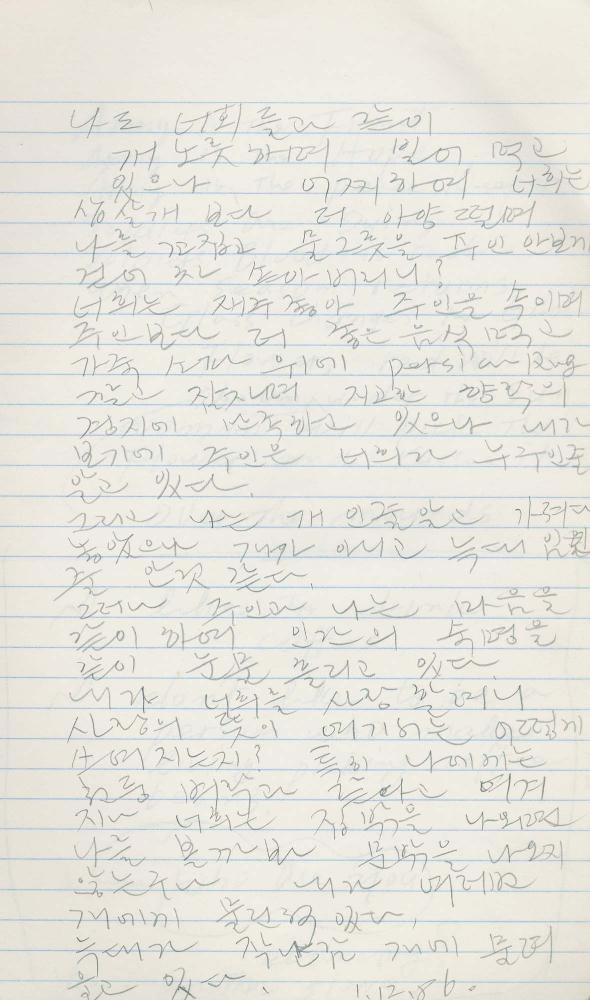 나도 너희들과 같이
개노릇 하며 빌어 먹고
있으나 어찌하여 너희는
삼살개 보다 더 아양 떨며
나를 꼬집고 물그릇을 주인 안보게
걷어 차 쏟아버리니?
너희는 재주좋아 주인을 속이며
주인보다 더 좋은 음식 먹고
가죽 쇼파 위에 persian Rug
깔고 잠자며 지고한 향락의
경지에 만족하고 있으나 내가
보기에 주인은 너희가 누구인줄
알고 있다.
그리고 나는 개 인줄알고 가져다
놓았으나 개가 아니고 늑대 임을
줄 안것 같다.
그러나 주인과 나는 마음을
같이 하며 인간의 숙명을
같이 눈물 흘리고 있다.
내가 너희를 사랑 할려니
사랑의 뜻이 여기서는 어떻게
쓰여지는지? 특히 나에게는
천둥 벼락과 같다고 여겨
지나 너희는 장벽을 나의
나를 볼까봐 문밖을 나오지
않는구나 내가 여러번
개에게 물린적 있다.
늑대가 작난감 개에 물려
울고 있다. 1.12.86.